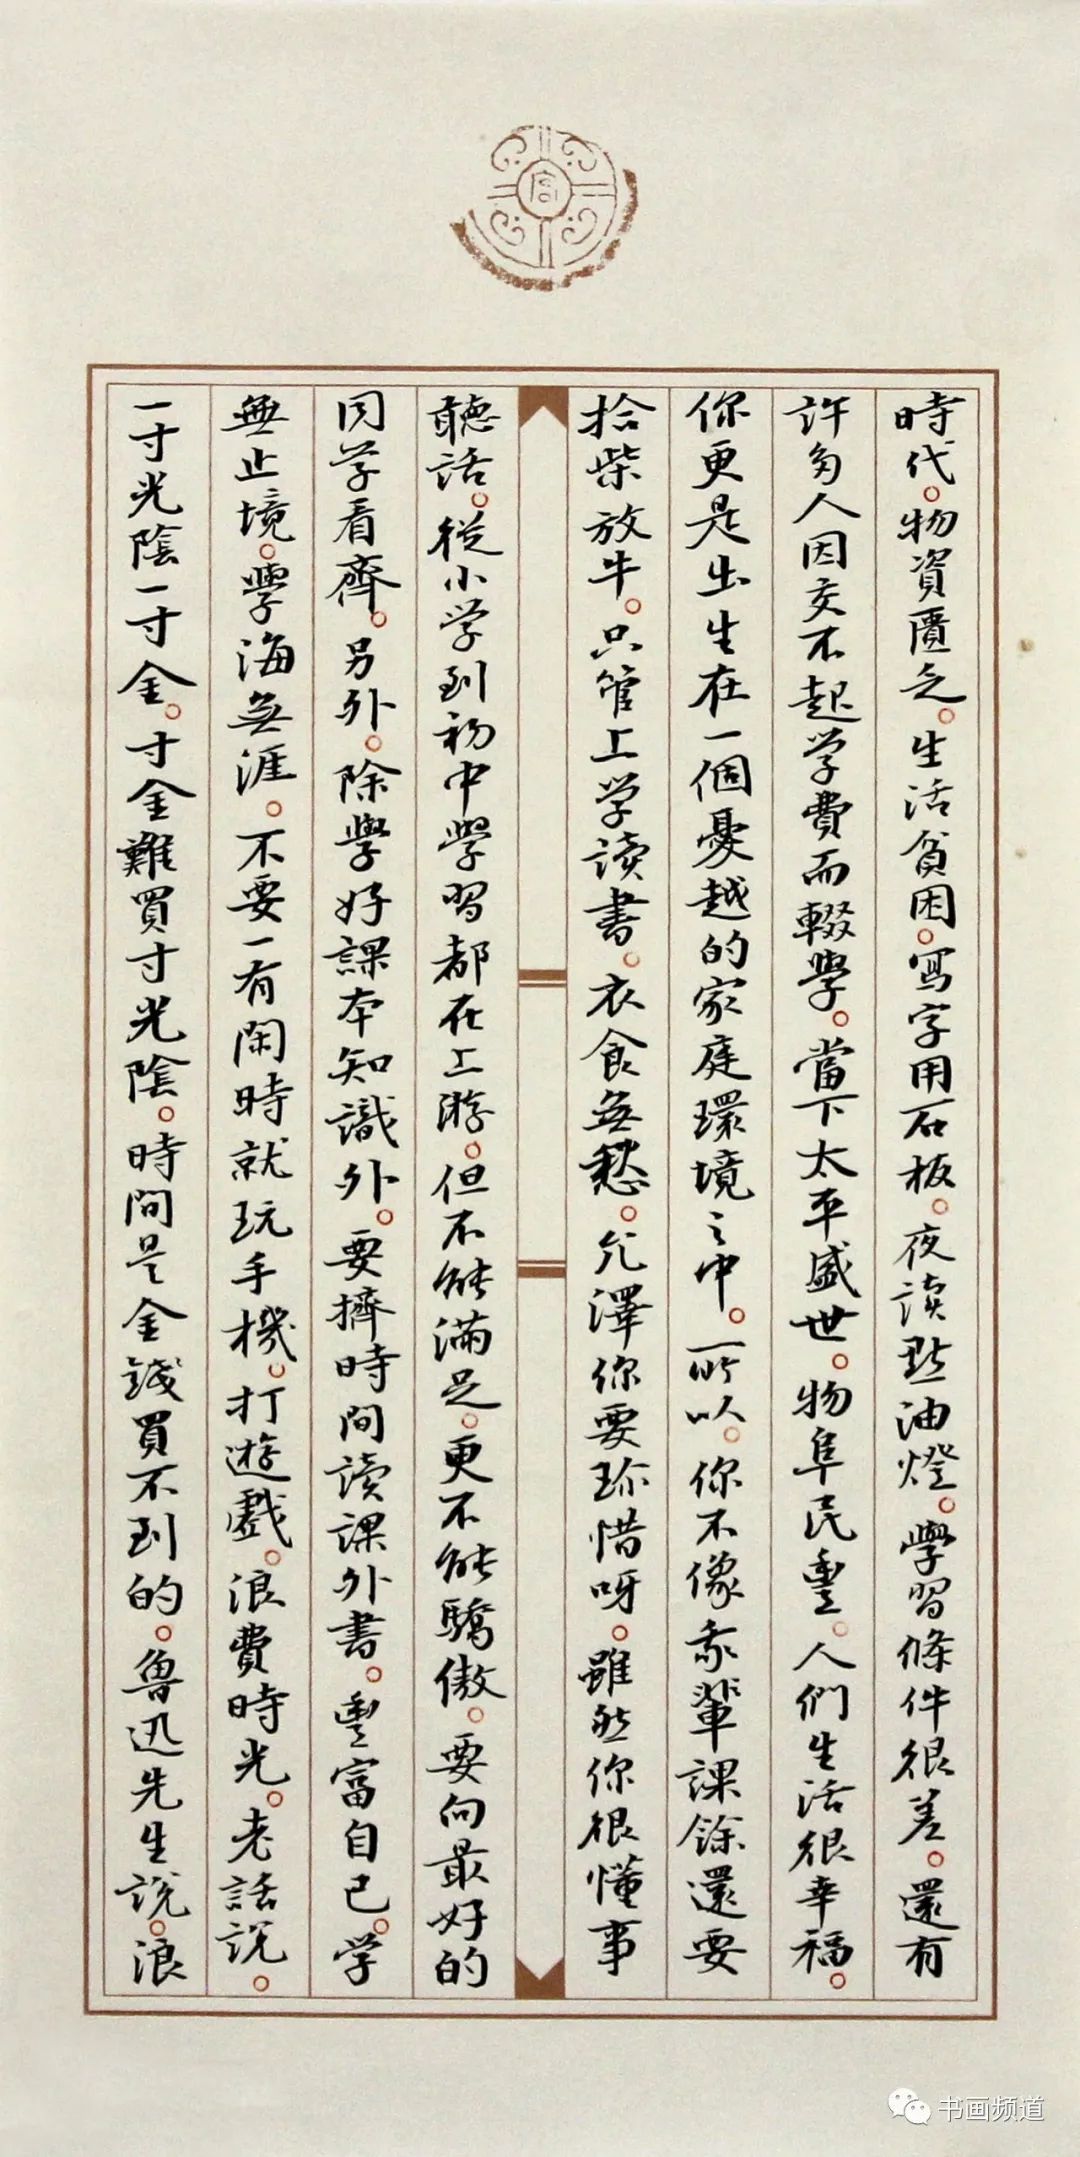 時代。物資匱乏。生活貧困。寫字用石板。夜读點油燈。學習條件很差。還有
許多人因交不起学費而輟學。當下太平盛世。物阜民豐。人們生活很幸福。
你更是出生在一個憂越的家庭環境之中。所以。你不像我輩課餘還要
拾柴放牛。只管上学读書。衣食無愁。允澤你要珍惜呀。雖然你很懂事
聽话。從小学到初中學習都在上游。但不能满足。更不能驕傲。要向最好的
同学看齊。另外。除學好課本知識外。要擠時間读課外書。豐富自己。学
無止境。學海無涯。不要一有閑時就玩手機。打遊戲。浪費時光。老話説。
一寸光陰一寸金。寸金難買寸光陰。時間是金錢買不到的。魯迅先生説。浪
书画频道